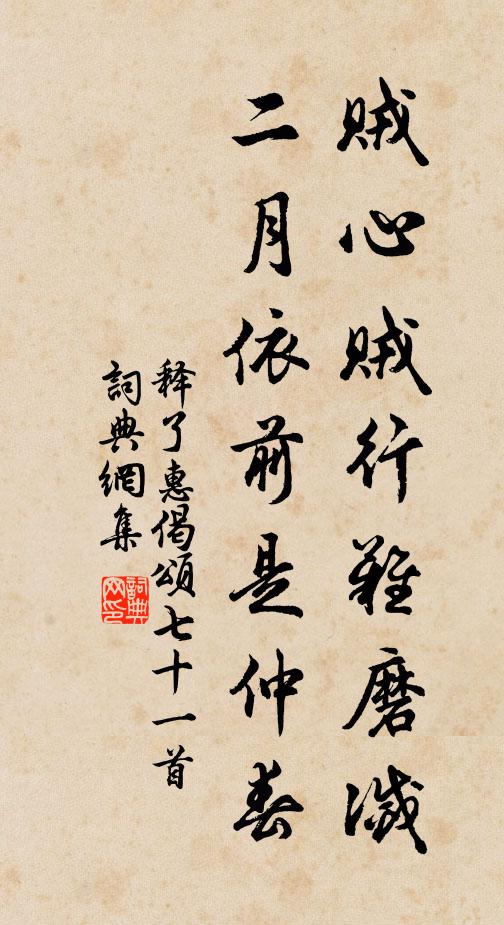 贼心贼行難磨滅
二月依前是仲春
释了惠偈頌七十一首
詞典網集
詞典
网印